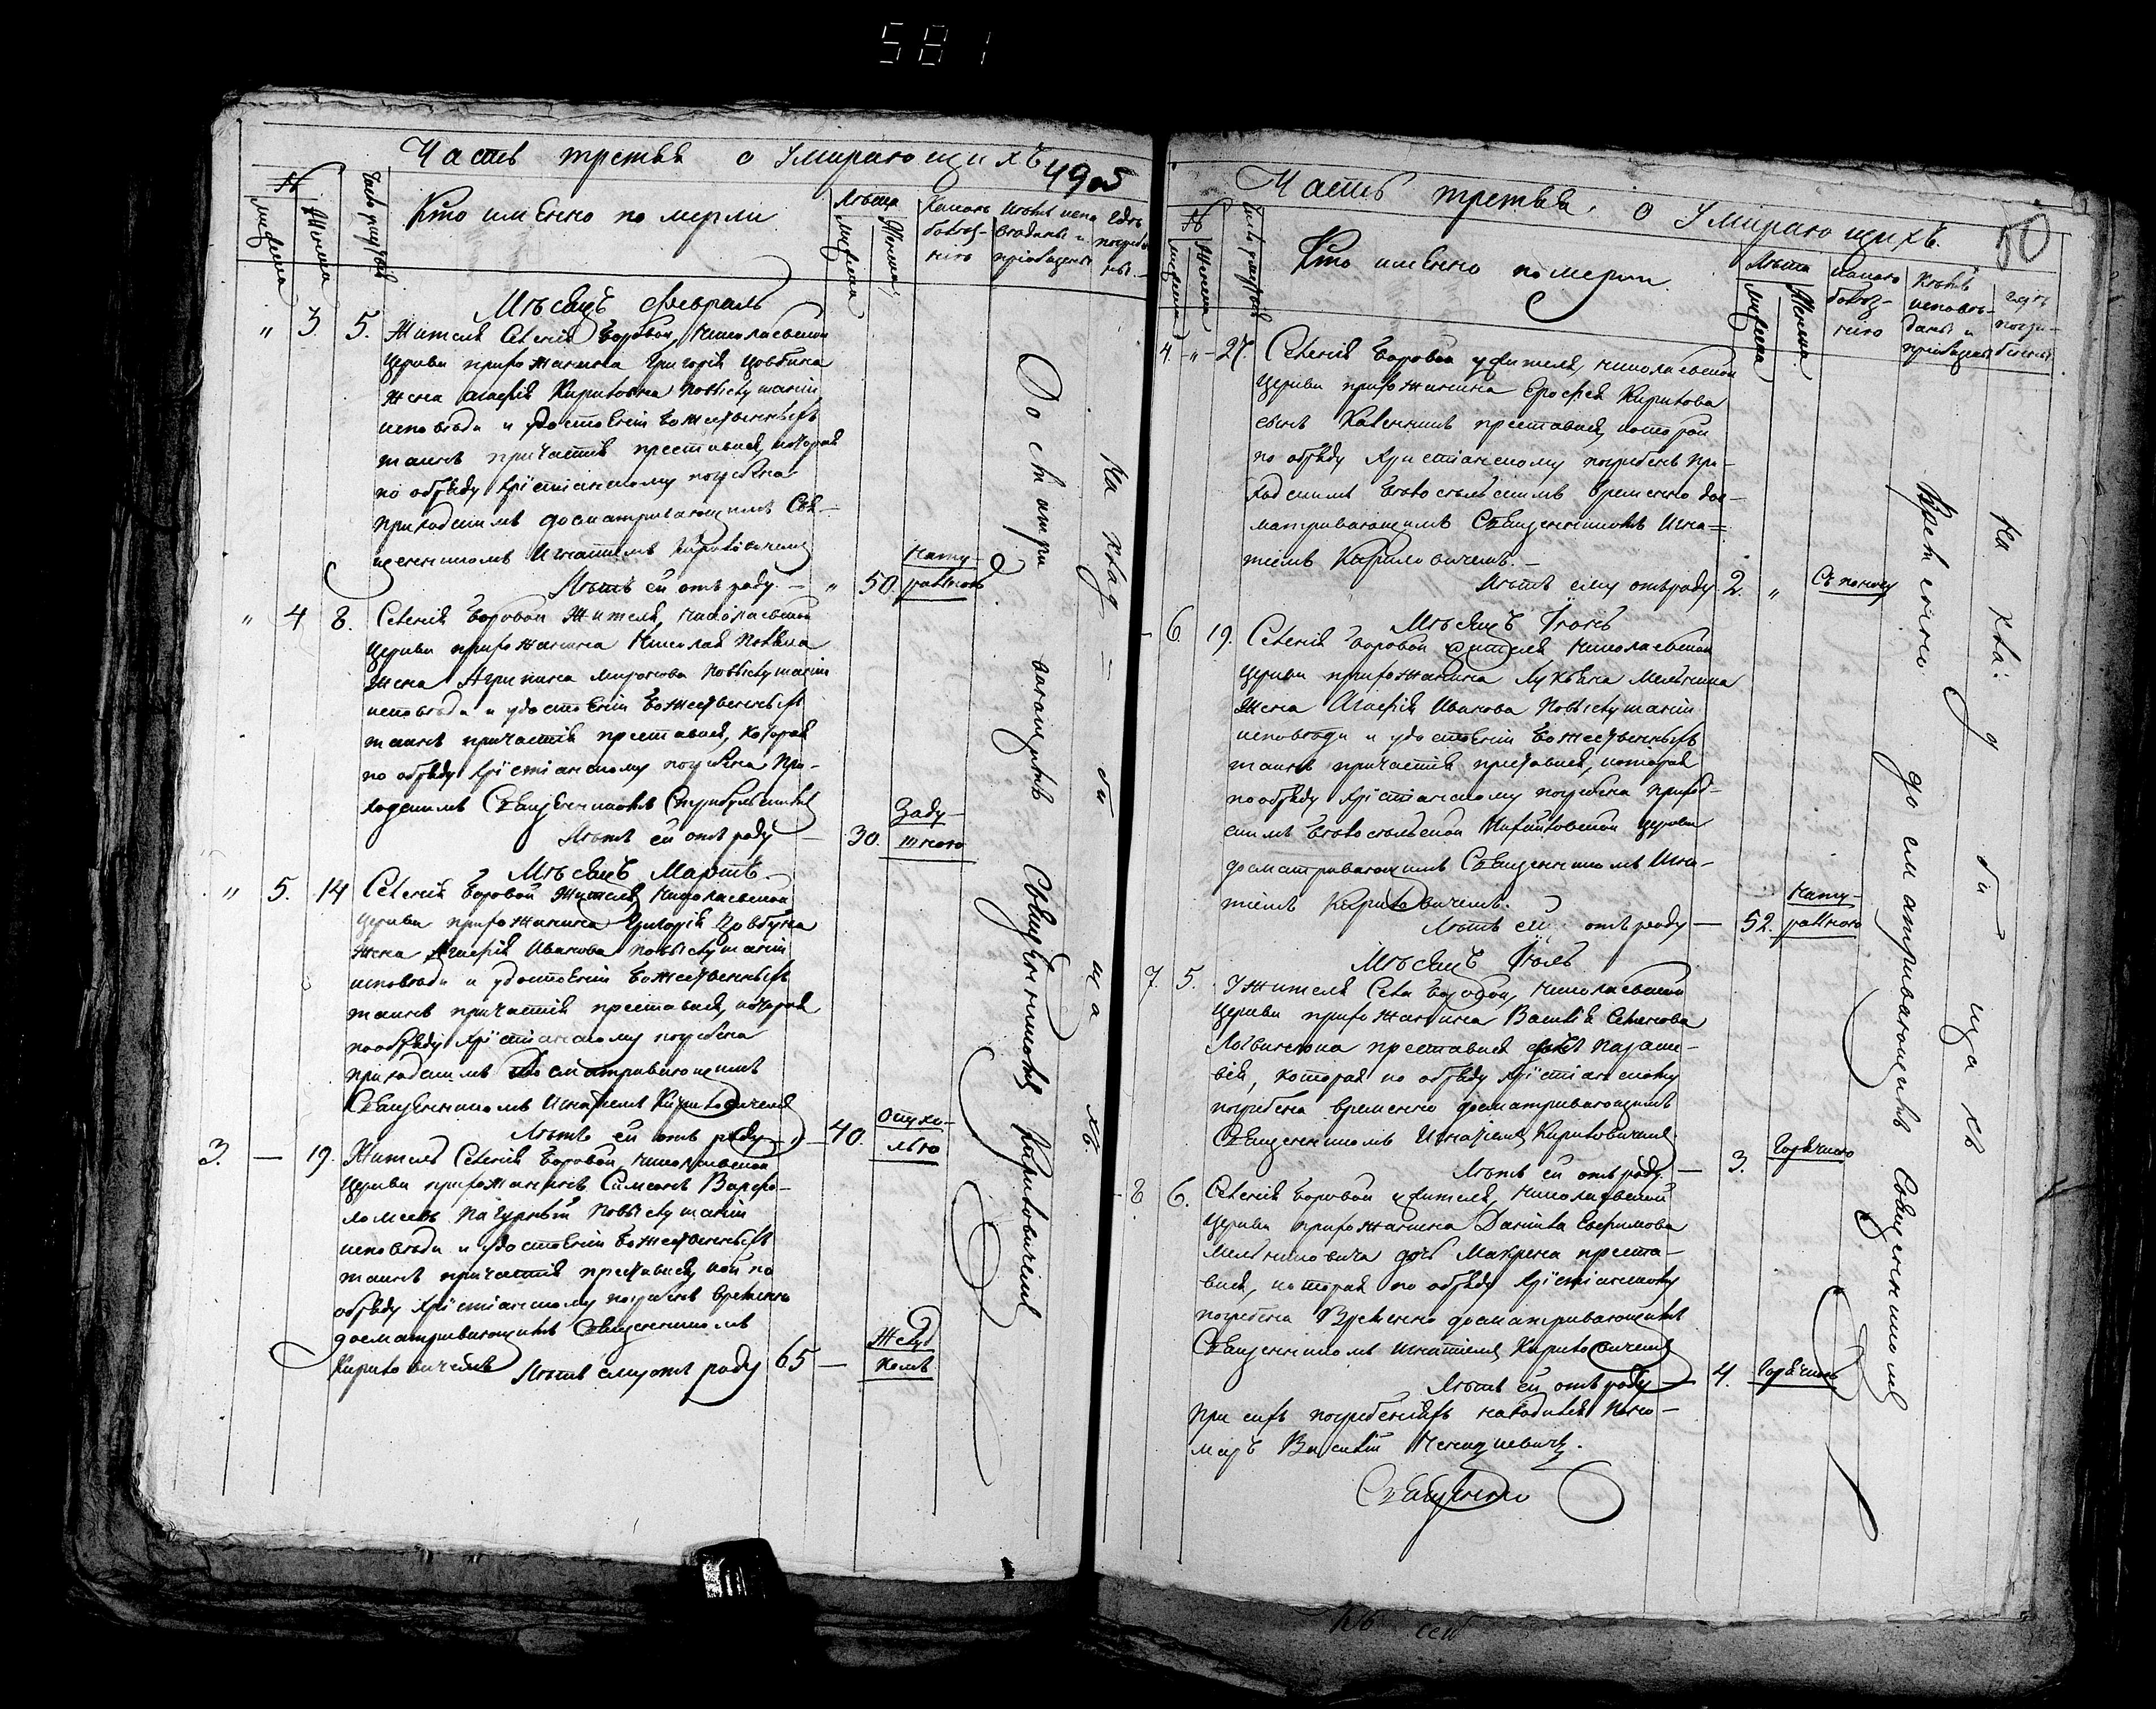 581
Часть третья о Умирающихъ
49 об
№
Число умершихъ
Кто имѣнно померли
Лѣта
Какою болѣз-нію
Кѣмъ исповѣданы и пріобщены
Гдѣ погребены
мужеска
Женска
мужеска
Женска
Мѣсяцъ Февраль
" 3. 5. Жителя Селенія Боровой, Николаевской
Церкви прихожанина Григорія
жена Агафія Кириловна по выслушаніи
исповѣди и удостоеніи Божественныхъ
таинъ причастія преставися, которая
по обряду Хрїстіанскому погребена
приходскимъ досматривающимъ Свя-
щенникомъ Игнатіемъ Кириловичемъ
Лѣтъ ей отъ роду — " 50. Нату-
ральною
" 4 8. Селенія Боровой Жителя, Николаевской
Церкви прихожанина Николая
Жена Агрипина Миронова по выслушаніи
исповѣди и удостоеніи Божественныхъ
таинъ причастія преставися, которая
по обряду Хрїстіанскому погребена При-
ходскимъ Священникомъ
Лѣтъ ей отъ роду — 30. Заду-
шною
Мѣсяцъ Мартъ.
" 5. 14 Селенія Боровой Жителя Николаевской
Церкви прихожанина Григорія
Жена Агафія Иванова по выслушаніи
исповѣди и удостоеніи Божественныхъ
таинъ причастія преставися, которая
по обряду Хрїстіанскому погребена
приходскимъ Досматривающимъ
Священникомъ Игнатіемъ Кириловичемъ
Лѣтъ ей отъ роду — " — 40. Опухо-
лью
3. — 19. Житель Селенія Боровой, Николаевской
Церкви прихожанинъ Симеонъ Варфо-
ломеевъ по выслушаніи
исповѣди и удостоеніи Божественныхъ
таинъ причастія преставися, кой по
обряду Хрїстіанскому погребенъ временно
досматривающимъ Священникомъ
Кириловичемъ Лѣтъ ему отъ роду 65 — Желуд
комъ
Досматривающимъ Священникомъ Кириловичемъ
На клад-би-ща хъ.
Часть третья о Умирающихъ.
50
№
Число умершихъ
Кто имѣнно померли
Лѣта
Какою болѣз-нію
Кѣмъ исповѣ-даны и пріобщены
Гдѣ погре-бены
мужеска
Женска
мужеска
Женска
4. - " - 27. Селенія Боровой у жителя, Николаевской
Церкви прихожанина Ерофея Кирилова
сынъ преставися, которой
по обряду Христіанскому погребенъ При-
ходскимъ временно дос-
матривающимъ Священникомъ Игна=
тіемъ Кириловичемъ. —
Лѣтъ ему отъ роду 2. " Съ поносу
Мѣсяцъ Іюнь
- 6. 19. Селенія Боровой жителя Николаевской
Церкви прихожанина Лукьяна Мельника
Жена Агафія Иванова по выслушаніи
исповѣди и удостоеніи Божественныхъ
таинъ причастія преставися, которая
по обряду Хрїстіанскому погребена приход-
скимъ Церкви
досматривающимъ Священникомъ Игна-
тіемъ Кириловичемъ.
Лѣтъ ей отъ роду — 52. Нату-
ральною
Мѣсяцъ Іюль
7. 5. У Жителя Села Боровой, Николаевской
Церкви прихожанина Василія Семенова
преставися дочь Параске-
вія, которая по обряду Хрїстіанскому
погребена временно досматривающимъ
Священникомъ Игнатіемъ Кириловичемъ
Лѣтъ ей отъ роду. — 3. Горячкою
- 8 6. Селенія Боровой у жителя, Николаевской
Церкви прихожанина Данила Ефримова
Мельниковича дочь Макрена преста-
вися, которая по обряду Хрїстіанскому
погребена Временно досматривающимъ
Священникомъ Игнатіемъ Кириловичемъ
Лѣтъ ей отъ роду — 4. Горячкою
При сихъ погребеніяхъ находился Поно-
марь Василій
Временно досматривающимъ Священникомъ
На кла: д би ща хъ